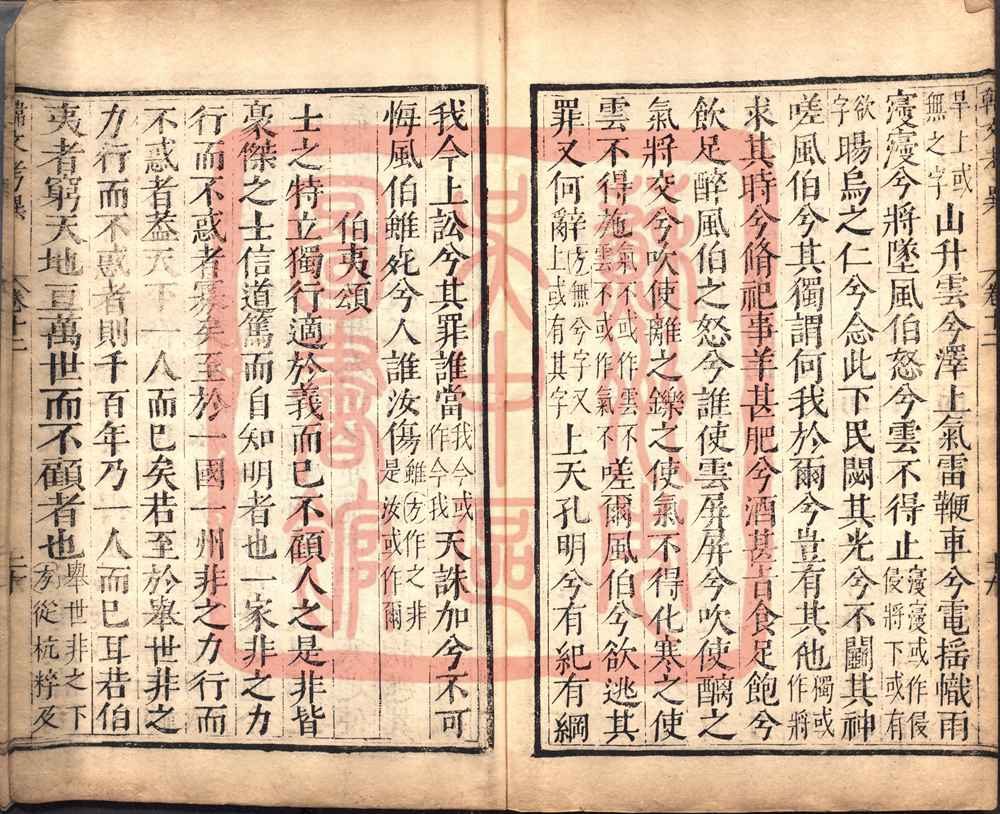 旱上或無之字山升雲兮澤上氣雷鞭車兮電搖幟雨
寖寖兮將墜風伯怒兮雲不得止寖寖或作侵侵將下或有
欲字暘烏之仁兮念此下民閟其光兮不鬭其神
嗟風伯兮其獨謂何我於爾兮豈有其他獨或作將
求其時兮脩祀事羊甚肥兮酒甚旨食足飽兮
飲足醉風伯之怒兮誰使雲屏屏兮吹使醨之
氣將交兮吹使離之鑠之使氣不得化寒之使
雲不得施氣不或作雲不雲不或作氣不嗟爾風伯兮欲逃其
罪又何辭方無兮字又上或有其字上天孔明兮有紀有綱
我今上訟兮其罪誰當我今或作今我天誅加兮不可
悔風伯雖死兮人誰汝傷雖方作之非是汝或作爾
伯夷頌
士之特立獨行適於義而已不顧人之是非皆
豪傑之士信道篤而自知明者也一家非之力
行而不惑者寡矣至於一國一州非之力行而
不惑者蓋天下一人而已矣若至於舉世非之
力行而不惑者則千百年乃一人而已耳若伯
夷者窮天地亘萬世而不顧者也舉世非之下方從杭粹及
韓文考異
卷十二